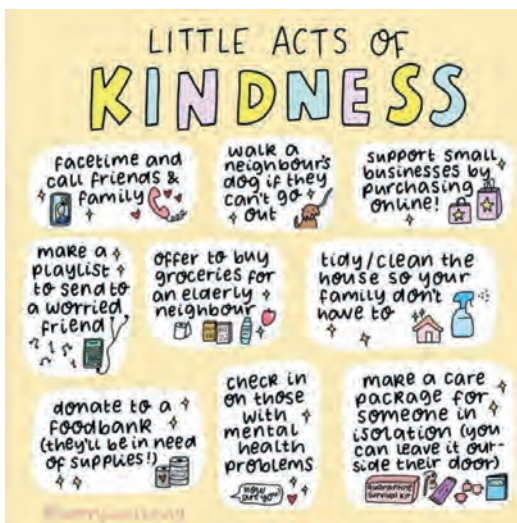 LITTLE ACTS OF
KINDNESS
facetime and
call friends &
family
walk a
neighbour's
dog if they
can't go
out
support small
businesses by
purchasing
online!
make a
playlist
to send to
a worried
friend
offer to buy
groceries for
an elderly
neighbour
tidy/clean the
house so your
family don't
have to
donate to a
foodbank
(they'll be in need
of supplies!)
check in
on those
with
mental
health
problems
how
are you?
make a care
package for
someone in
isolation (you
can leave it our-
side their door)
quarantine
survival kit